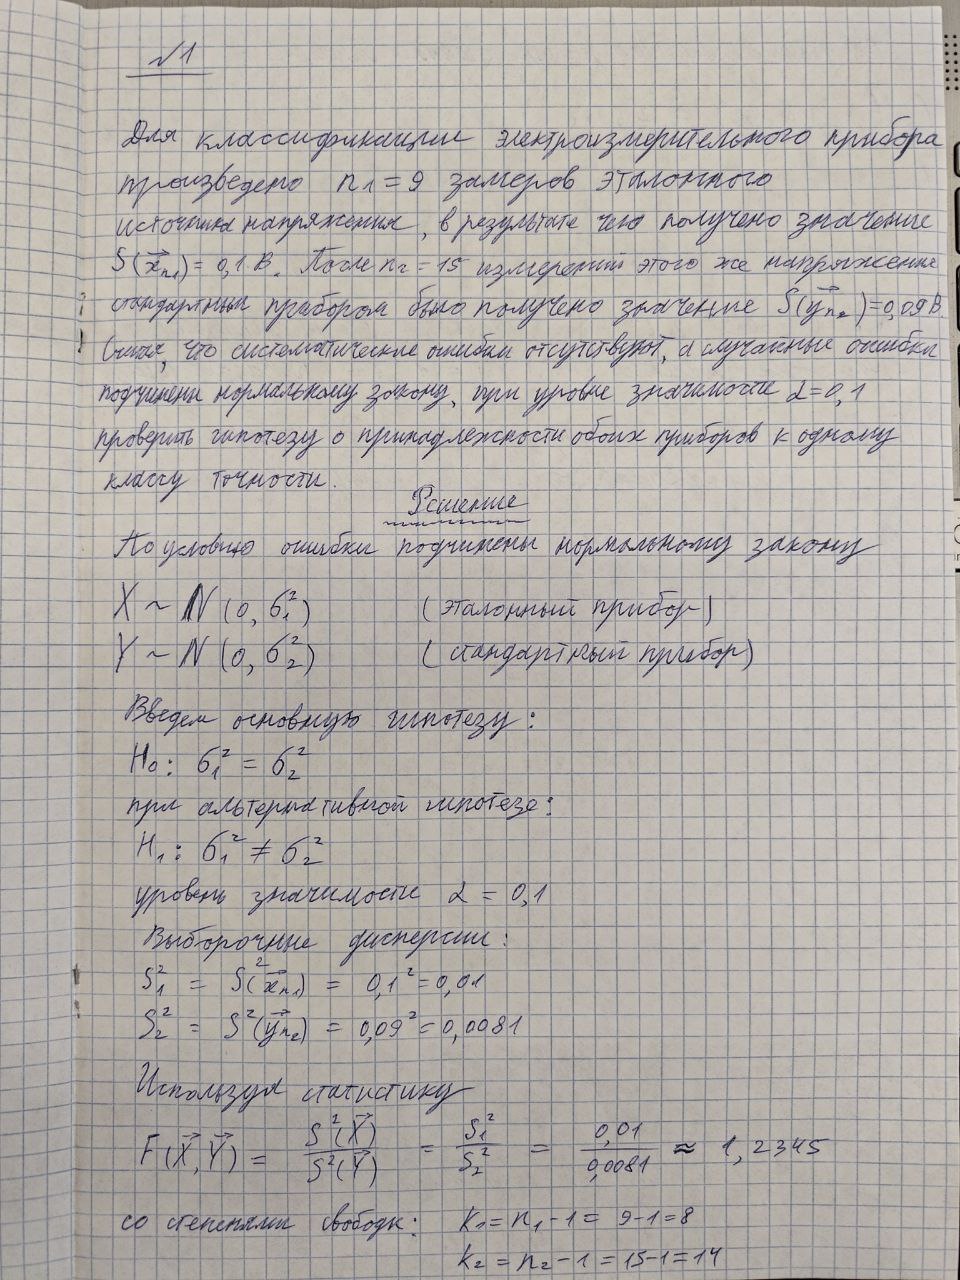 √1
Для классификации электроизмерительного прибора
произведено n₁ = 9 замеров эталонного
источника напряжения, в результате чего получено значение
S(x⃗ₙ₁) = 0,1 В. После n₂ = 15 измерений этого же напряжения
стандартным прибором было получено значение S(y⃗ₙ₂) = 0,09 В.
Считая, что систематические ошибки отсутствуют, а случайные ошибки
подчинены нормальному закону, при уровне значимости α = 0,1
проверить гипотезу о принадлежности обоих приборов к одному
классу точности.
Решение
По условию ошибки подчинены нормальному закону
X ~ N(0, σ₁²) (эталонный прибор)
Y ~ N(0, σ₂²) (стандартный прибор)
Введем основную гипотезу:
H₀: σ₁² = σ₂²
при альтернативной гипотезе:
H₁: σ₁² ≠ σ₂²
уровень значимости α = 0,1
Выборочные дисперсии:
S₁² = S²(x⃗ₙ₁) = 0,1² = 0,01
S₂² = S²(y⃗ₙ₂) = 0,09² = 0,0081
Используя статистику
F(X⃗, Y⃗) = S²(X⃗)/S²(Y⃗) = S₁²/S₂² = 0,01/0,0081 ≈ 1,2345
со степенями свободы: k₁ = n₁ - 1 = 9 - 1 = 8
k₂ = n₂ - 1 = 15 - 1 = 14